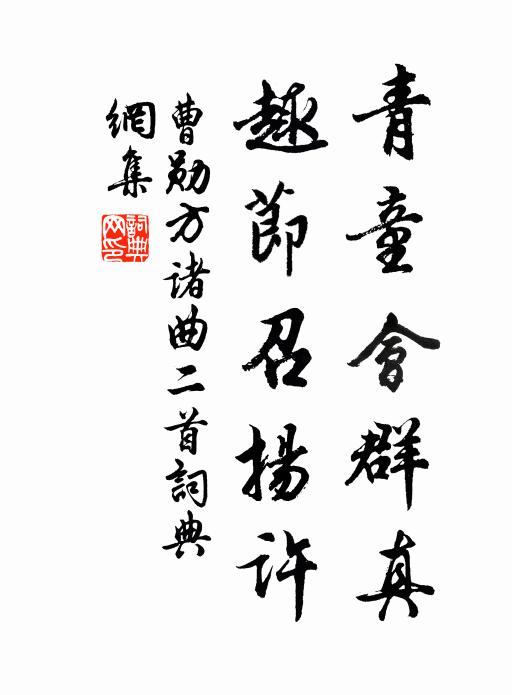 青童會群真
趣節召揚許
曹勛方諸曲二首詞典
網集
詞典網印